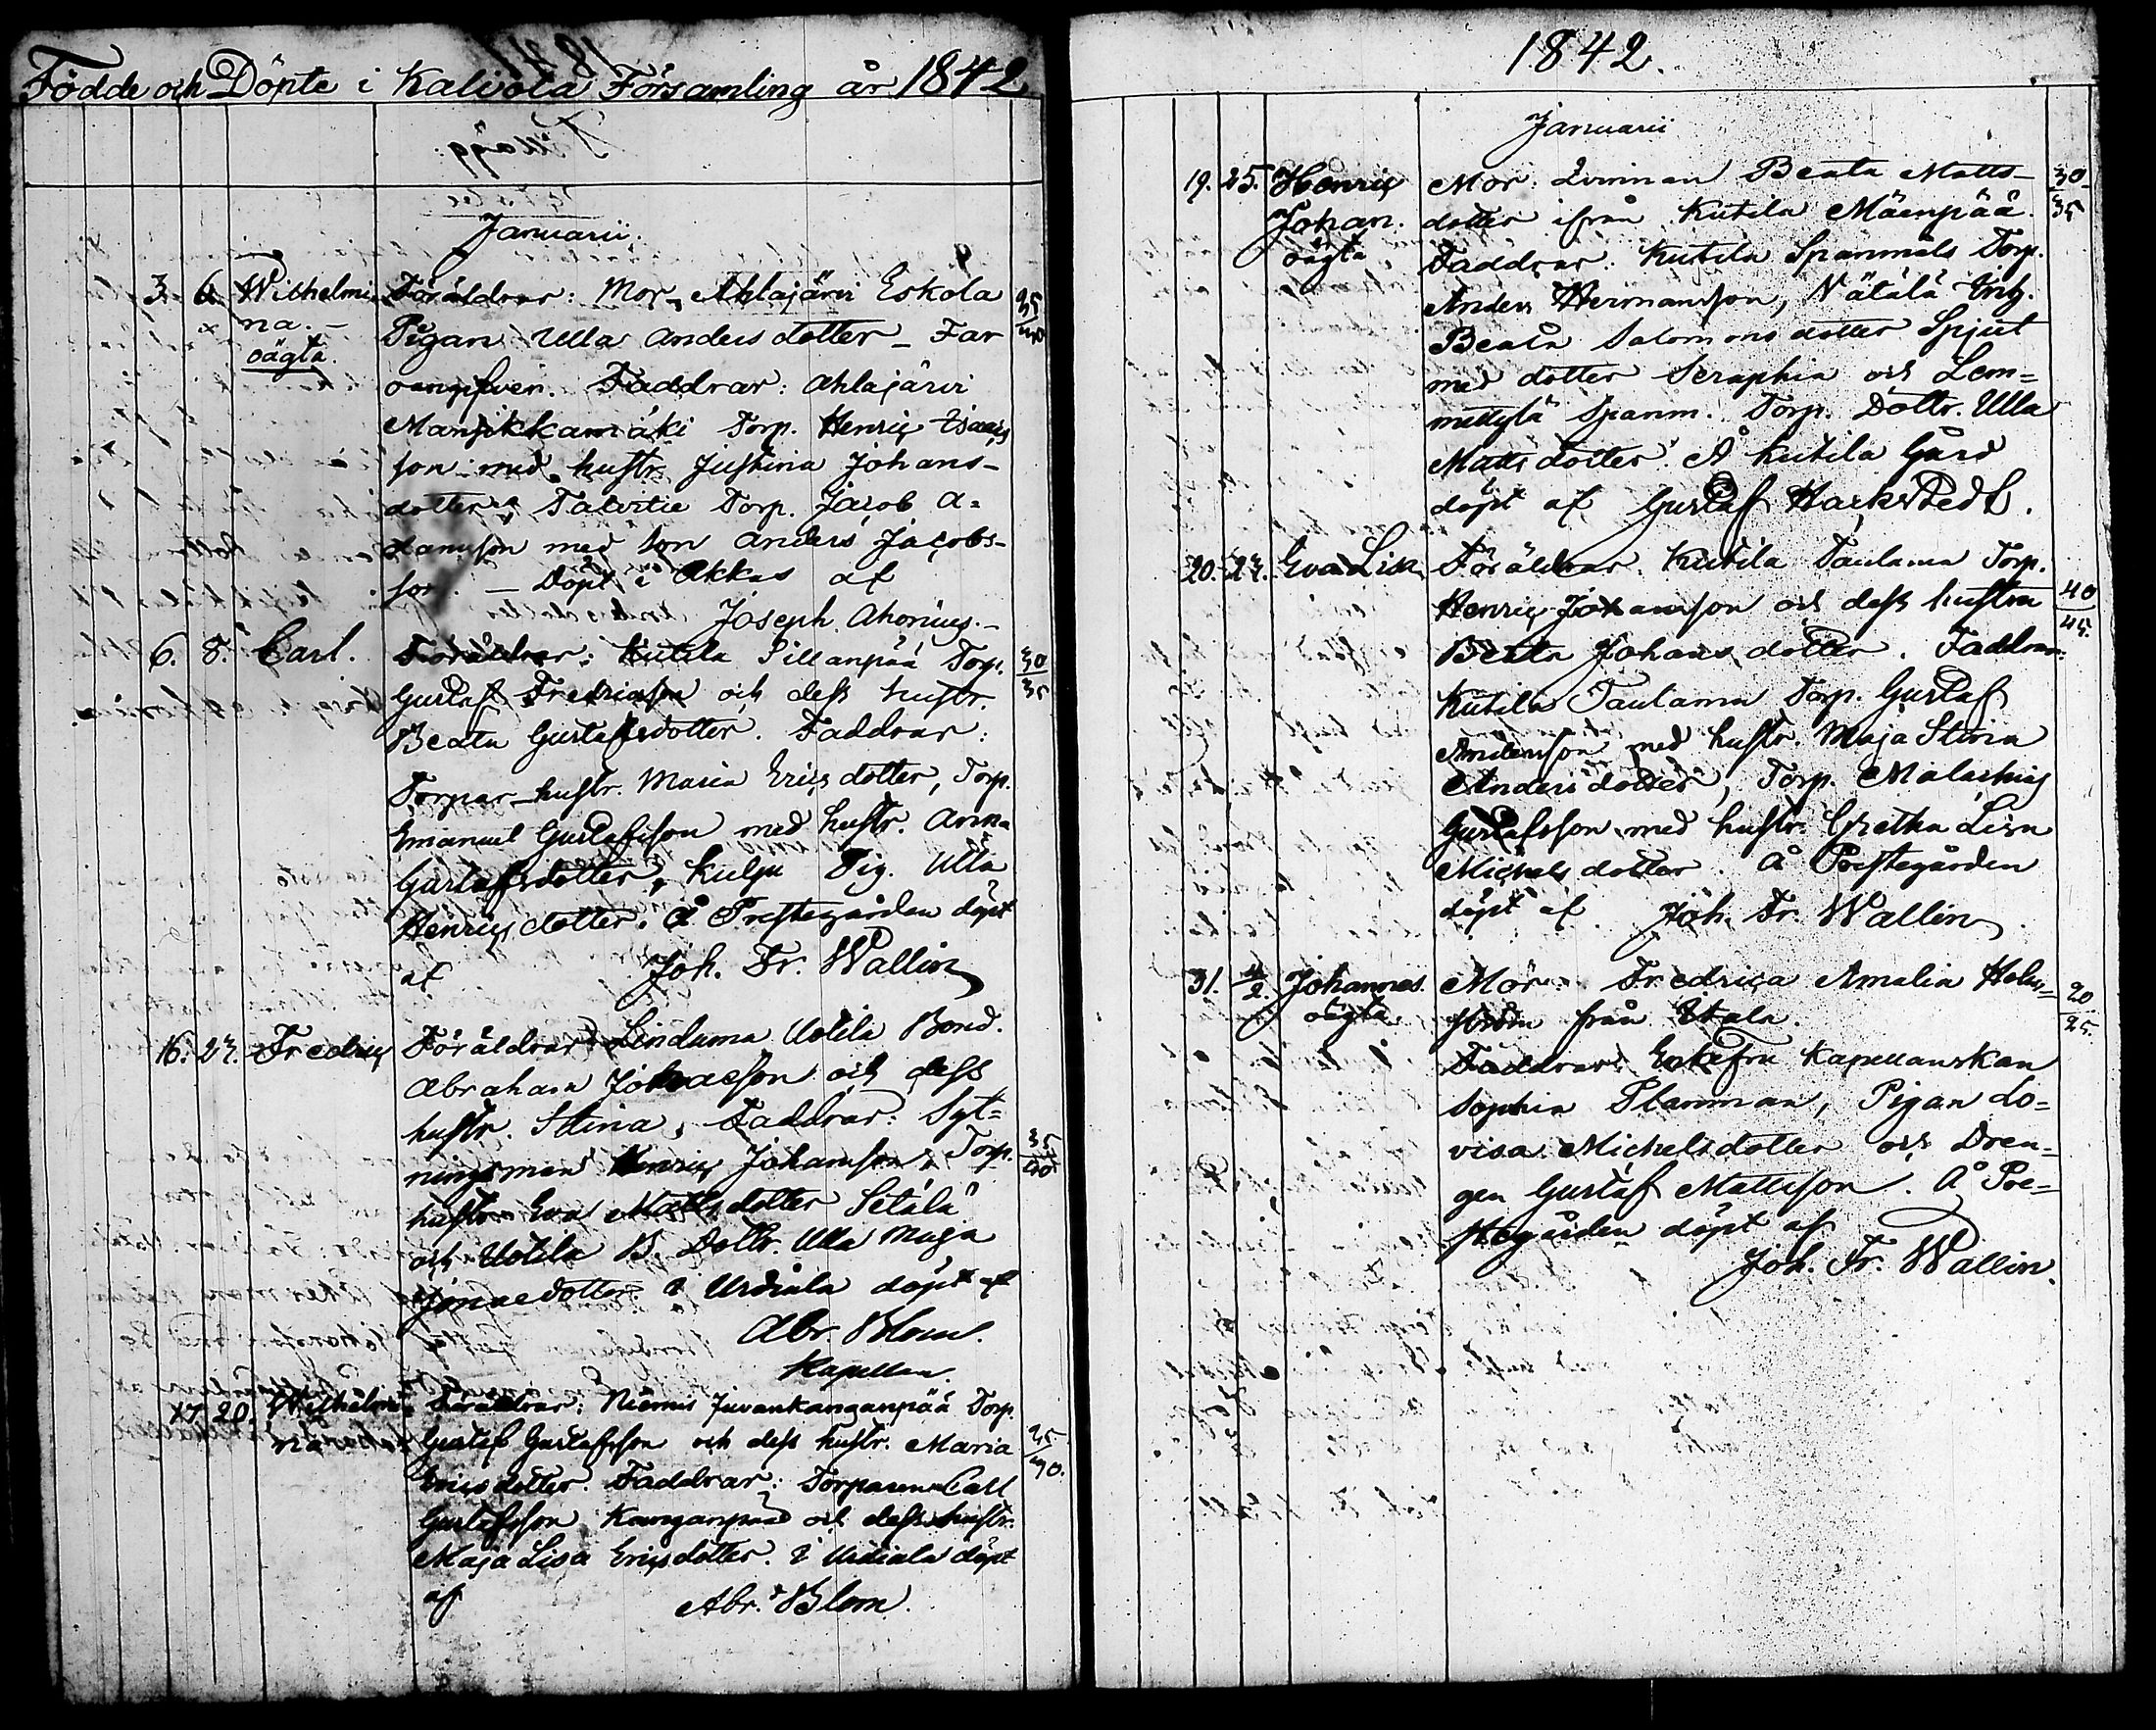 Födde och Döpte i Kalvola Församling år 1842
Januarii.
3. 6. Wilhelmi- Föräldrar: Mor, Ahlajärvi Eskola 35
na. – Pigan Ulla Anders dotter – Far 40
oägta. oangifven. Faddrar: Ahlajärvi
Mansikkamäki Torp. Henric Isacs
son med hustr. Justina Johans-
dotter, Talvitie Torp. Jacob A-
damsson med son Anders Jacobs-
son. – Döpt i Akkas af
Joseph Ahonius. –
6. 8. Carl. Föräldrar: Kutila Sillanpää Torp. 30
Gustaf Fredricsson och dess hustr. 35
Beata Gustafsdotter. Faddrar:
Torpar-hustr. Maria Erics dotter, Torp.
Emanuel Gustafsson med hustr. Anna
Gustafsdotter, Kulju Pig. Ulla
Henrics dotter. Å Prestegården döpt
af Joh. Fr. Wallin
16. 27. Fredric Föräldrar: Linduma Uotila Bond.
Abraham och dess
hustr. Stina, Faddrar: Syt-
ningsman Henric Johansson, Torp. 35
hustr. Eva Matts dotter Setälä 40
och Uotila B. Dottr. Ulla Maja
dotter i Urdiala döpt af
Abr. Blom.
Kapellan.
17 20. Wilhelmi- Föräldrar: Niemis Juvankanganpää Torp.
na Gustaf Gustafsson och dess hustr. Maria 35
Erics dotter. Faddrar: Torparena Carl 40.
Gustafsson Kanganpää och dess hustr.
Maja Lisa Ericsdotter. i Urdiala döpt
af Abr. Blom.
1842.
Januarii
19. 25. Henric Mor: Qvinnan Beata Matts- 30
Johan. dotter ifrån Kutila Mäenpää. 35
oägta Faddrar: Kutila Spanmåls Torp.
Anders Hermansson, Nätälä Enk.
Beata Salomons dotter Spjut
med dotter Seraphia och Lem-
mettylä Spanm. Torp. Dottr. Ulla
Matts dotter. Å Kutila Gård
döpt af Gustaf Hackstedt.
20. 27. Eva Lisa Föräldrar. Kutila Taulama Torp.
Henric Johansson och dess hustru 40
Beata Johans dotter. Faddrar: 45.
Kutila Taulama Torp. Gustaf
Andersson med hustr. Maja Stina
Anders dotter, Torp. Malachias
Gustafsson med hustr. Gretha Lisa
Michels dotter. Å Prestegården
döpt af Joh. Fr. Wallin.
31. 4/2. Johannes. Mor: Fredrica Amalia Holm- 20
oägta. ström från Utala. 25.
Faddrar: Enkefru Kapellanskan
Sophia Flamman, Pigan Lo-
visa Michelsdotter och Dren-
gen Gustaf Mattsson. Å Pre-
stegården döpt af
Joh. Fr. Wallin.